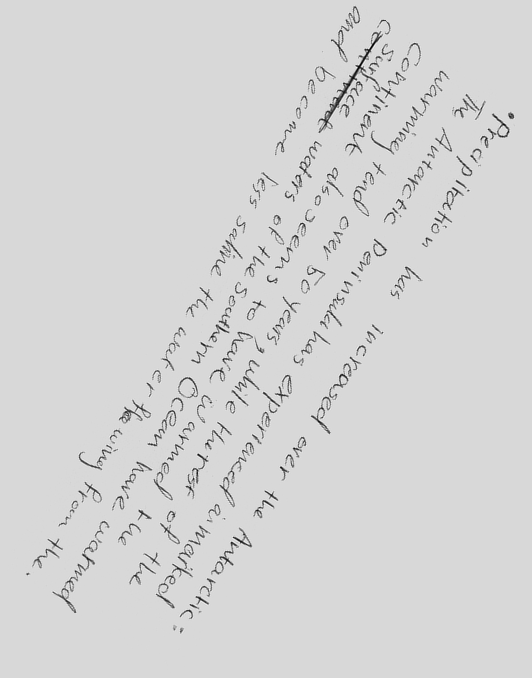 • Precipitation has increased over the Antarctic.
The Antarctic peninsula has experienced a marked
warming tend over 50 years, while the rest of the
Continent also seems to have warmed the
surface waters of the Southern Ocean have warmed
and become less saline the water flowing from the.